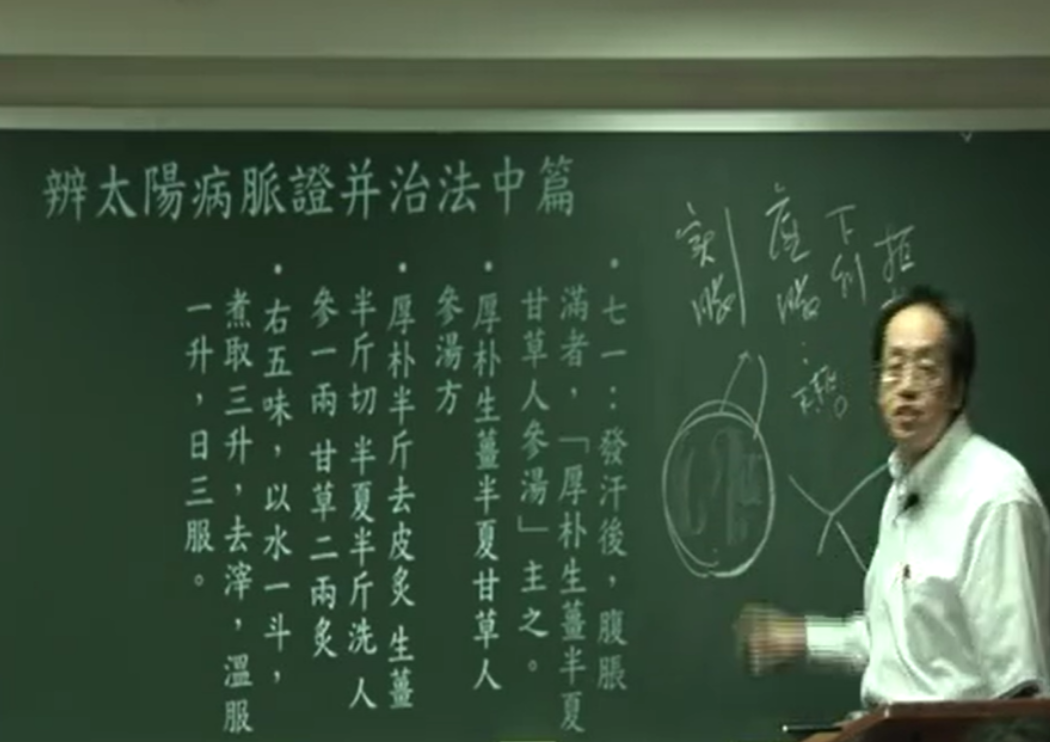 辨太陽病脈證并治法中篇
• 七一：發汗後，腹脹
滿者，「厚朴生薑半夏
甘草人參湯」主之。
• 厚朴生薑半夏甘草人
參湯方
• 厚朴半斤去皮炙 生薑
半斤切 半夏半斤洗 人
參一兩 甘草二兩炙
• 右五味，以水一斗，
煮取三升，去滓，溫服
一升，日三服。
實脹
虛脹
下利